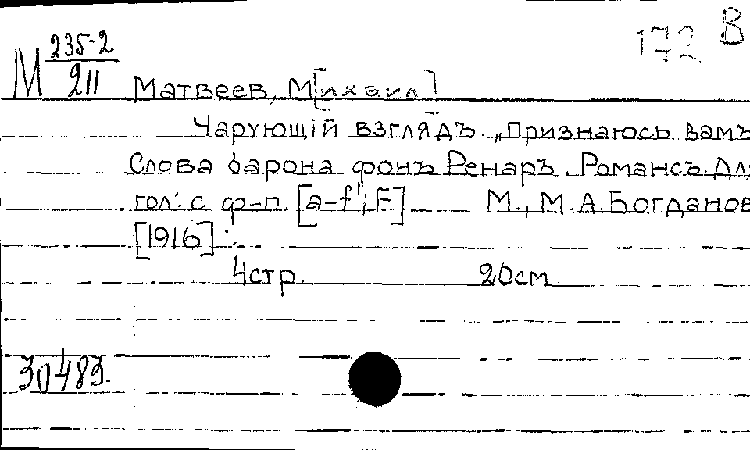 172 В
М 235-2
211
Матвеев, М[ихаил]
Чарующiй взглядъ. „Признаюсь вамъ
Слова барона фонъ Ренаръ. Романсъ. Для
гол. с ф-п. [a-f"; F] М., М.А. Богданов
[1916].
4стр. 20см
30483.